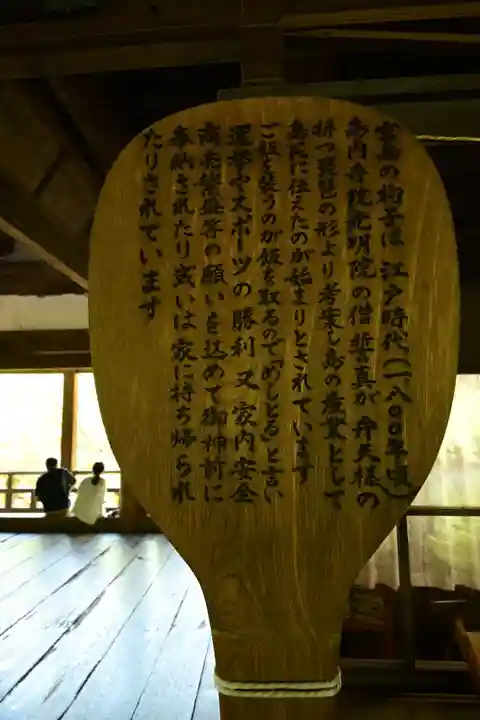 宮島の杓子は 江戸時代(一八〇〇年頃)
島内寺院光明院の僧誓真が弁天様の
持つ琵琶の形より考案し島の産業として
島民に伝えたのが始まりとされています
ご飯を装うのが飯を取るので「めしとる」と言い
選挙やスポーツの勝利又家内安全
商売繁盛等の願いを込めて御神前に
奉納されたり或いは家に持ち帰られ
たりされています